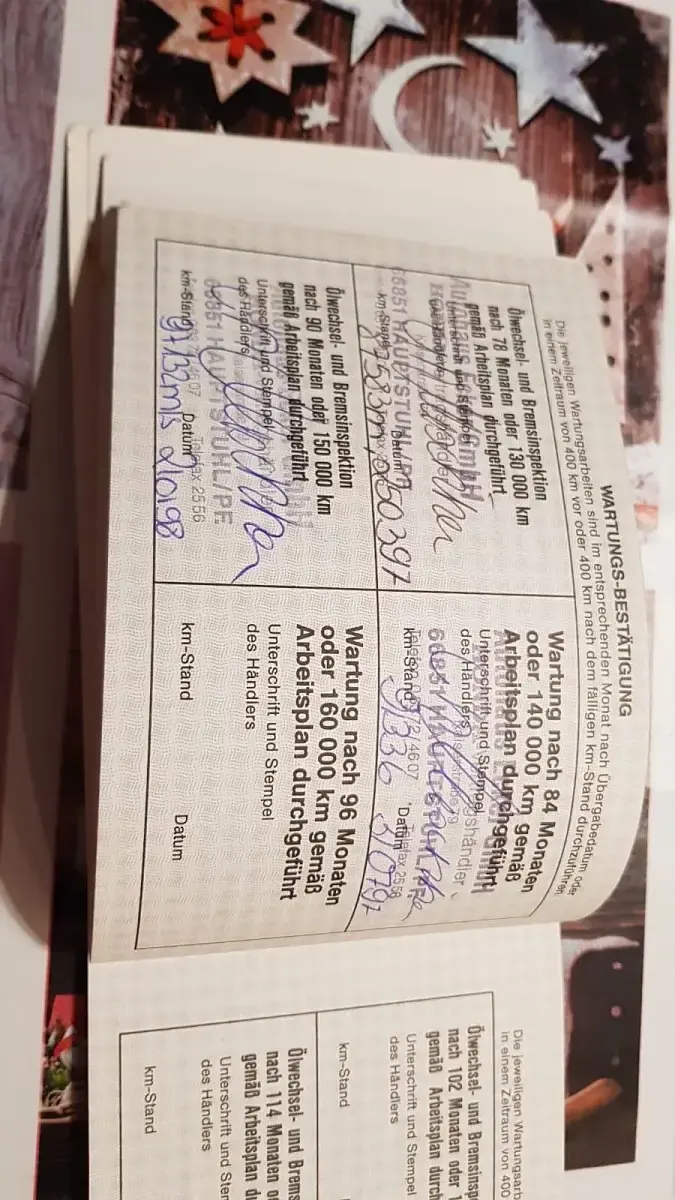 WARTUNGS-BESTÄTIGUNG
Die jeweiligen Wartungsarbeiten sind im entsprechenden Monat nach Übergabedatum oder
in einem Zeitraum von 400 km vor oder 400 km nach dem fälligen km-Stand durchzuführen.
Ölwechsel- und Bremsinspektion
nach 78 Monaten oder 130 000 km
gemäß Arbeitsplan durchgeführt
Unterschrift und Stempel
des Händlers
66851 HAUPTSTUHL
km-Stand
Datum
Wartung nach 84 Monaten
oder 140 000 km gemäß
Arbeitsplan durchgeführt
Unterschrift und Stempel
des Händlers
66851
km-Stand 91336 Datum 310797
Telefax 2556
Ölwechsel- und Bremsinspektion
nach 90 Monaten oder 150 000 km
gemäß Arbeitsplan durchgeführt
Unterschrift und Stempel
des Händlers
66851 HAUPTSTUHL/PF
Telefax 2556
km-Stand Datum
Wartung nach 96 Monaten
oder 160 000 km gemäß
Arbeitsplan durchgeführt
Unterschrift und Stempel
des Händlers
km-Stand Datum
Die jeweiligen Wartungsarb
in einem Zeitraum von 400
Ölwechsel- und Bremsinsp
nach 102 Monaten oder 1
gemäß Arbeitsplan durch
Unterschrift und Stempel
des Händlers
km-Stand
Ölwechsel- und Brems
nach 114 Monaten o
gemäß Arbeitsplan d
Unterschrift und Ster
des Händlers
km-Stand